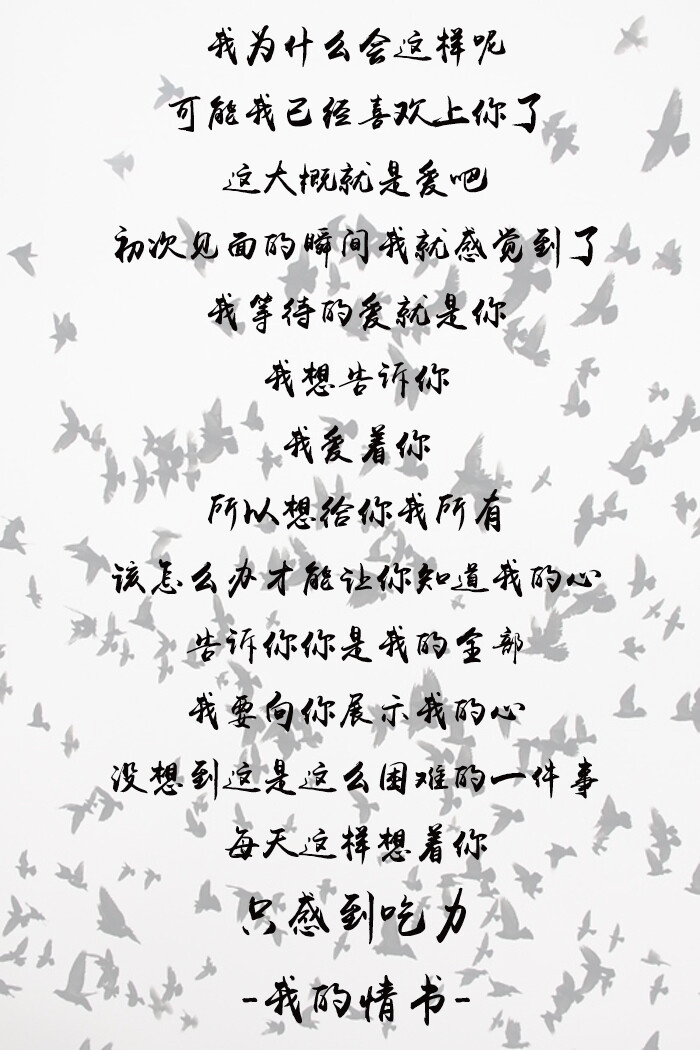 我为什么会这样呢
可能我已经喜欢上你了
这大概就是爱吧
初次见面的瞬间我就感觉到了
我等待的爱就是你
我想告诉你
我爱着你
所以想给你我所有
该怎么办才能让你知道我的心
告诉你你是我的全部
我要向你展示我的心
没想到这是这么困难的一件事
每天这样想着你
只感到吃力
-我的情书-